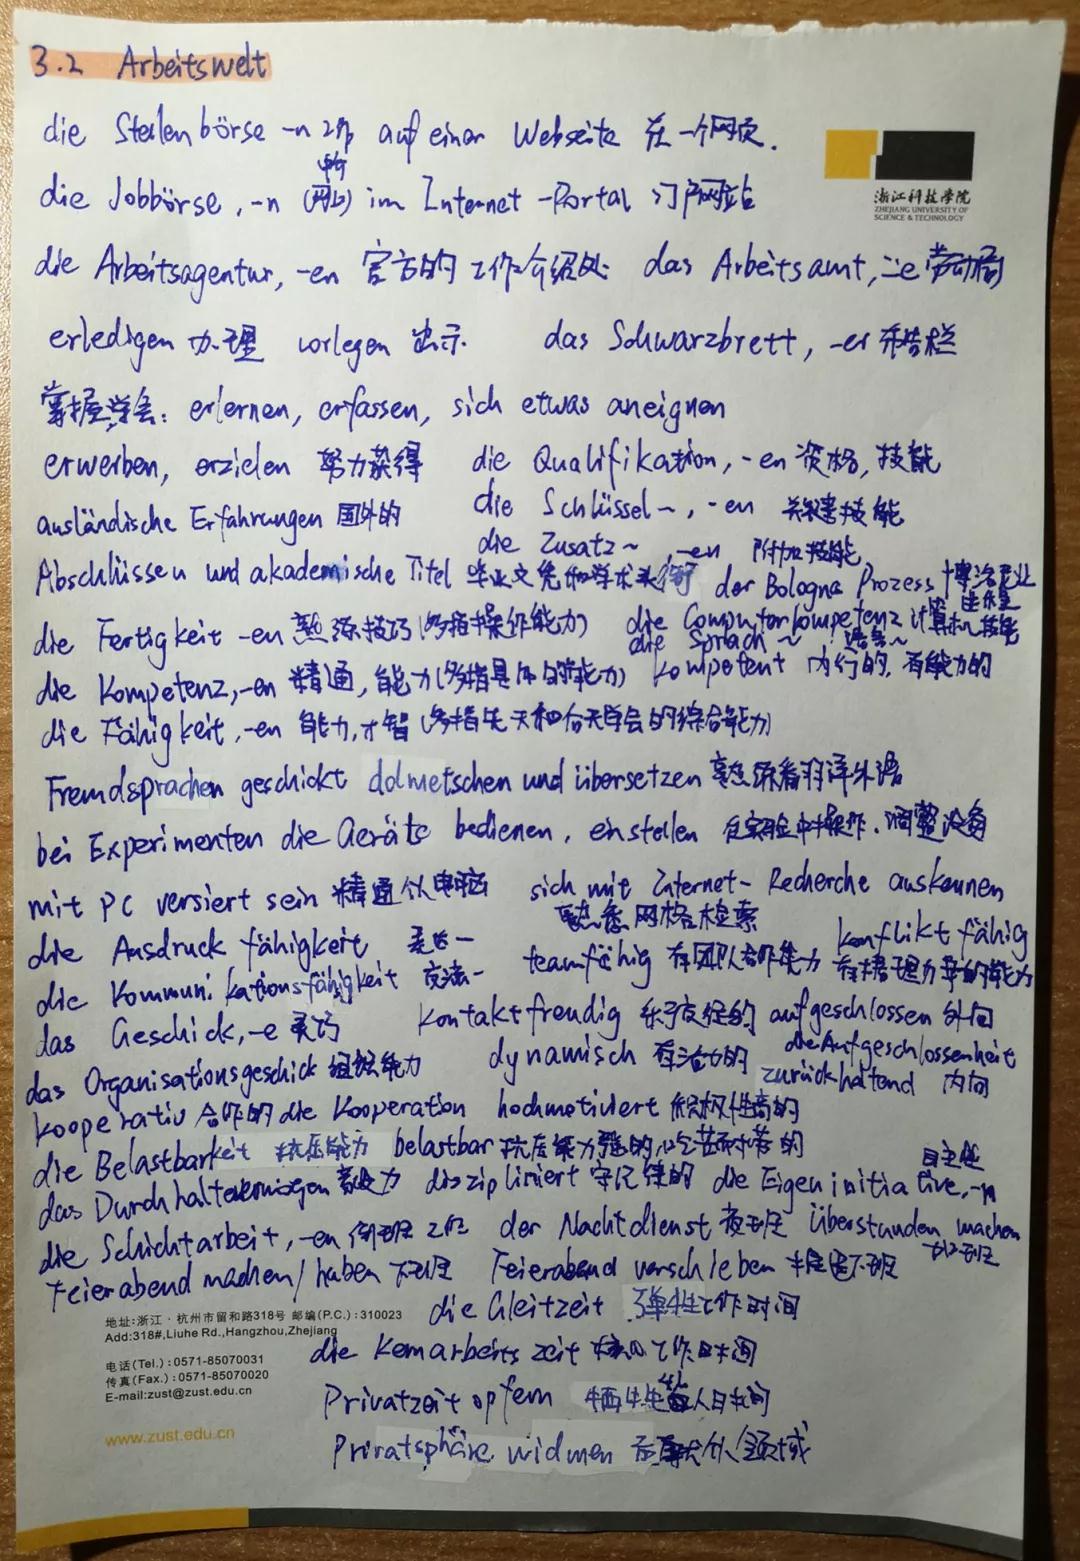 3.2 Arbeitswelt
die Stellenbörse -n auf einer Webseite 在一个网页.
浙江科技学院
ZHEJIANG UNIVERSITY OF
SCIENCE & TECHNOLOGY
die Jobbörse, -n (网上) im Internet-Portal 门户网站
die Arbeitsagentur, -en 官方的工作介绍处 das Arbeitsamt, ⸚e 劳动局
erledigen 办理 vorlegen 出示 das Schwarzbrett, -er 布告栏
掌握,学会: erlernen, erfassen, sich etwas aneignen
erwerben, erzielen 努力获得 die Qualifikation, -en 资格,技能
ausländische Erfahrungen 国外的 die Schlüssel~, -en 关键技能
die Zusatz~, -en 附加技能
Abschlüssen und akademische Titel 毕业文凭和学术头衔 der Bologna Prozess 博洛尼亚进程
die Fertigkeit -en 熟练技巧(多指操作能力) die Computerkompetenz 计算机技能
die Sprach~ 语言~
die Kompetenz, -en 精通,能力(多指具体的能力) kompetent 内行的,有能力的
die Fähigkeit, -en 能力,才智(多指先天和后天学会的综合能力)
Fremdsprachen geschickt dolmetschen und übersetzen 熟练着翻译外语
bei Experimenten die Geräte bedienen, einstellen 在实验中操作、调整设备
mit PC versiert sein 精通个人电脑 sich mit Internet-Recherche auskennen
熟悉网络检索
die Ausdruck fähigkeit 表达~ teamfähig 有团队合作能力 konflikt fähig 有搭理力争的能力
die Kommunikationsfähigkeit 交流~
das Geschick, -e 灵巧 kontaktfreudig 乐于交往的 aufgeschlossen 外向
die Aufgeschlossenheit
das Organisationsgeschick 组织能力 dynamisch 有活力的 zurückhaltend 内向
kooperativ 合作的 die Kooperation hochmotiviert 积极性高的
die Belastbarkeit 抗压能力 belastbar 抗压能力强的,吃苦耐劳的
das Durchhaltevermögen 毅力 diszipliniert 守纪律的 die Eigeninitiative, -n 自主性
die Schichtarbeit, -en 倒班工作 der Nachtdienst 夜班 Überstunden machen 加班
Feierabend machen/haben 下班 Feierabend verschieben 推迟下班
die Gleitzeit 弹性工作时间
die Kernarbeitszeit 核心工作时间
Privatzeit opfern 牺牲私人时间
Privatsphäre widmen 奉献个人领域
地址:浙江·杭州市留和路318号 邮编(P.C.):310023
Add:318#,Liuhe Rd.,Hangzhou,Zhejiang
电话(Tel.):0571-85070031
传真(Fax.):0571-85070020
E-mail:zust@zust.edu.cn
www.zust.edu.cn